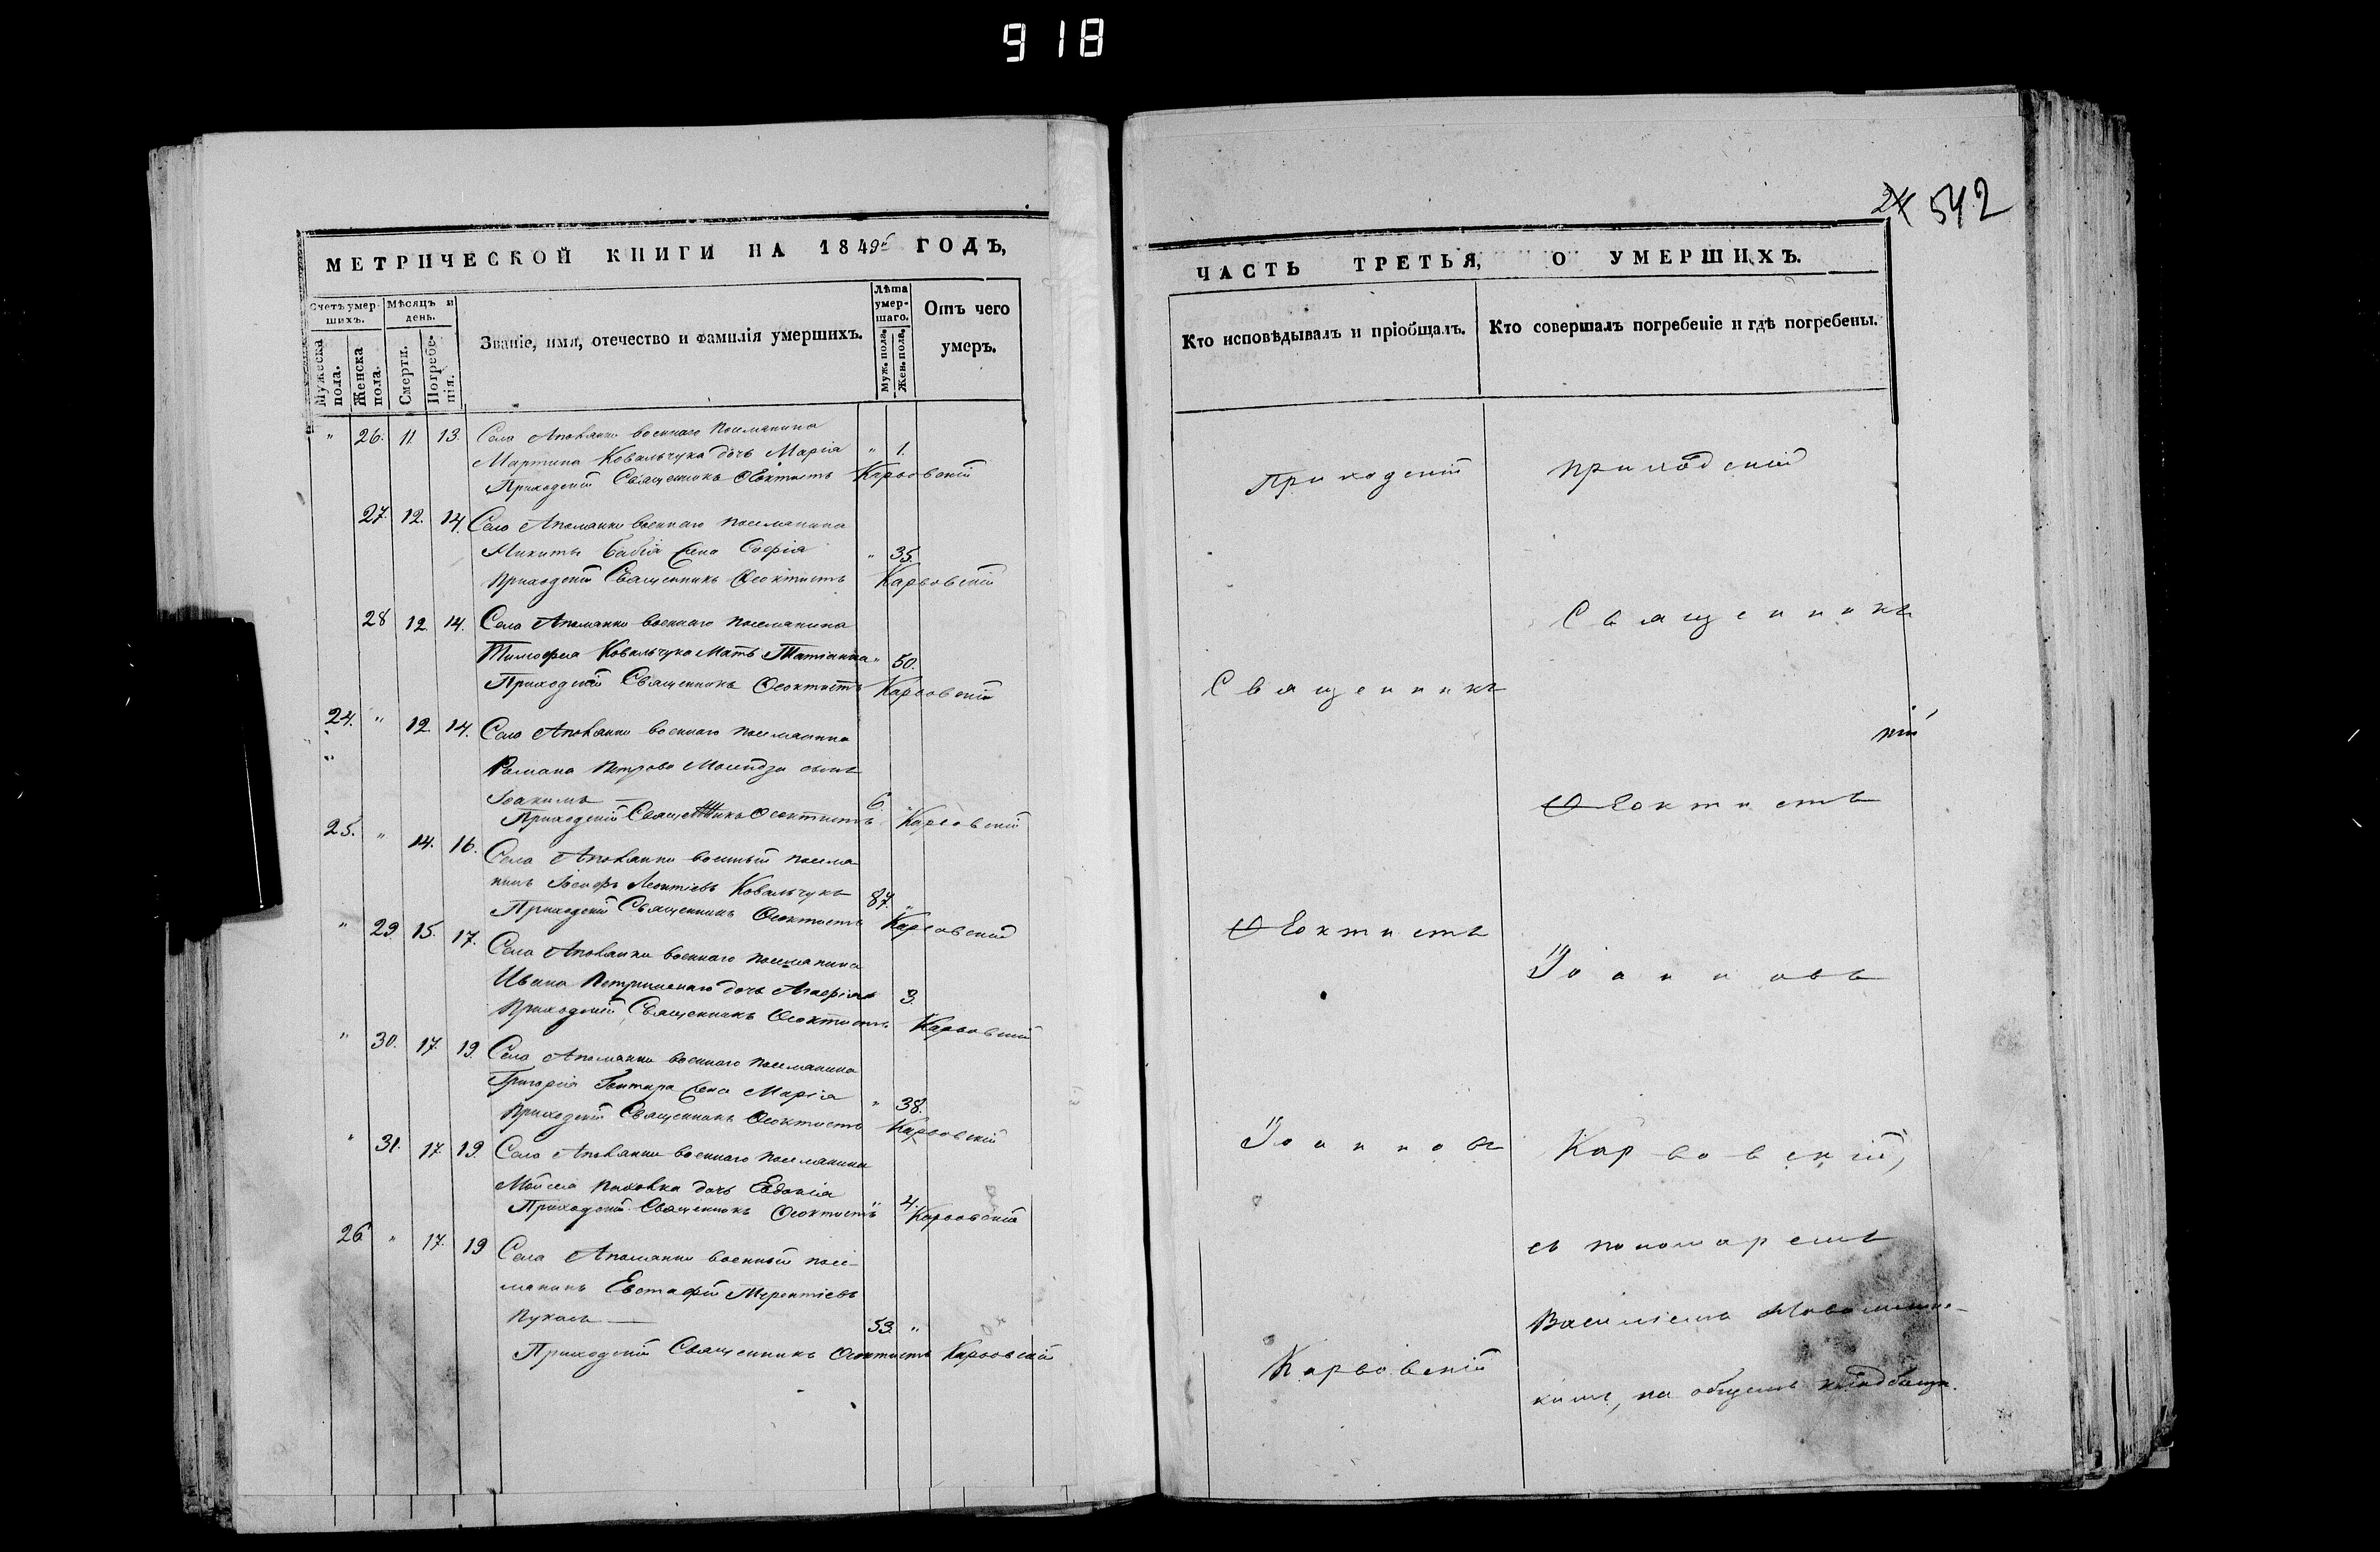 918
МЕТРИЧЕСКОЙ КНИГИ НА 1849г ГОДЪ,
Счетъ умер-
шихъ.
Мѣсяцъ и
день.
Мужеска
пола.
Женска
пола.
Смерти.
Погребе-
нія.
Званіе, имя, отечество и фамилія умершихъ.
Лѣта
умер-
шаго.
Муж. пола.
Жен. пола.
Отъ чего
умеръ.
" 26. 11. 13. Села военнаго поселянина
Мартина Ковальчука дочь Марія " 1.
Приходскій Священникъ Ѳеоктистъ Карвовскій
27. 12. 14. Села военнаго поселянина
Микиты Бабія жена Софія " 35.
Приходскій Священникъ Ѳеоктистъ Карвовскій
28 12. 14. Села военнаго поселянина
Тимофея Ковальчука мать Татіанна " 50.
Приходскій Священникъ Ѳеоктистъ Карвовскій
24. " 12. 14. Села военнаго поселянина
Романа Петрова сынъ
Іоакимъ — 6.
Приходскій Священникъ Ѳеоктистъ Карвовскій
25. " 14. 16. Села военный поселя
нинъ Іосифъ Леонтіевъ Ковальчукъ 87. "
Приходскій Священникъ Ѳеоктистъ Карвовскій
" 29. 15. 17. Села военнаго поселянина
Ивана дочь 3.
Приходскій Священникъ Ѳеоктистъ Карвовскій
" 30. 17. 19. Села военнаго поселянина
Григорія жена Марія " 38.
Приходскій Священникъ Ѳеоктистъ Карвовскій
" 31. 17. 19. Села военнаго поселянина
Моисея дочь Евдокія " 4.
Приходскій Священникъ Ѳеоктистъ Карвовскій
26 " 17. 19 Села военный посе-
лянинъ Евстафій Терентіевъ
53. "
Приходскій Священникъ Ѳеоктистъ Карвовскій
542
ЧАСТЬ ТРЕТЬЯ, О УМЕРШИХЪ.
Кто исповѣдывалъ и пріобщалъ.
Кто совершалъ погребеніе и гдѣ погребены.
Приходскій
Священникъ
Ѳеоктистъ
Іоанновъ
Карвовскій
Приходскій
Священникъ
Ѳеоктистъ
Іоанновъ
Карвовскій,
съ пономаремъ
Василіемъ
кимъ, на общемъ кладбищѣ.